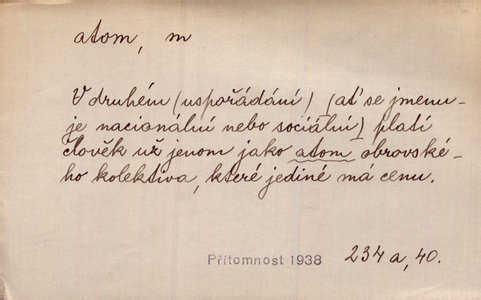 atom, m
V druhém (uspořádání) (ať se jmenu-
je nacionální nebo sociální) platí
člověk už jenom jako atom obrovské-
ho kolektiva, které jediné má cenu.
Přítomnost 1938 234a, 40.